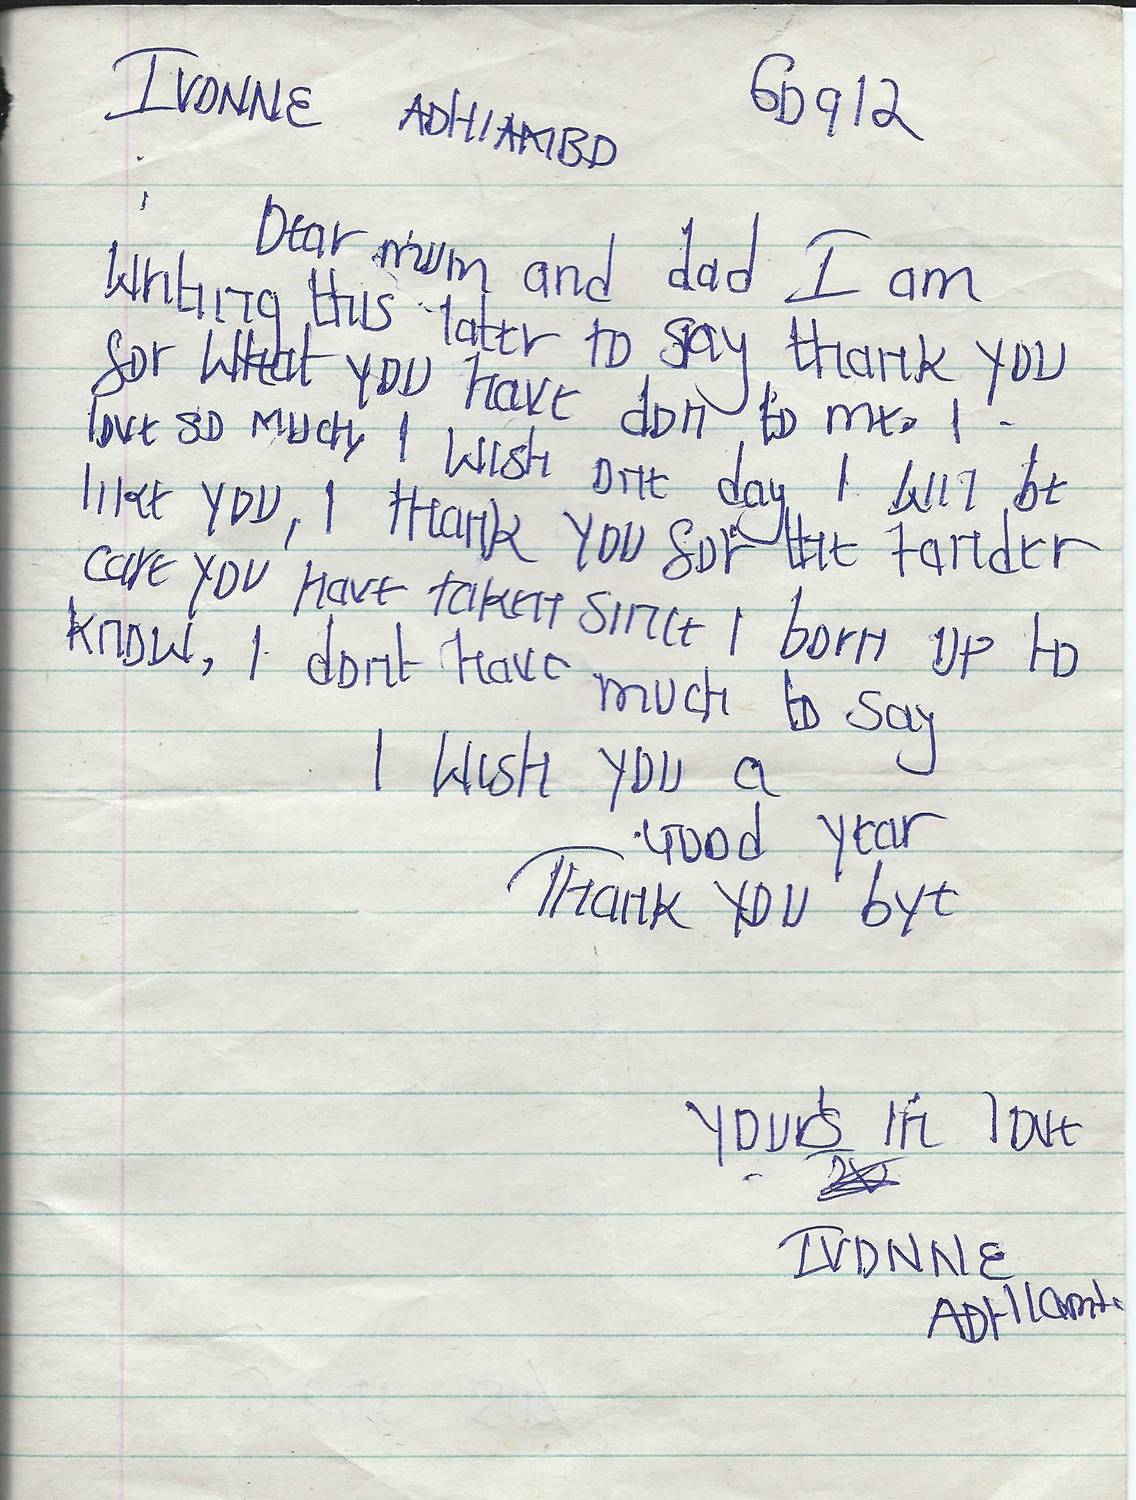 IVONNE ADHIAMBO GD912
Dear mum and dad I am
Writing this latter to say thank you
for what you have don to me. I
love so much, I wish one day I will be
like you, I thank you for the tander
care you have taken since I born up to
know, I dont have much to say
I wish you a
Good year
Thank you bye
yours in love
IVONNE